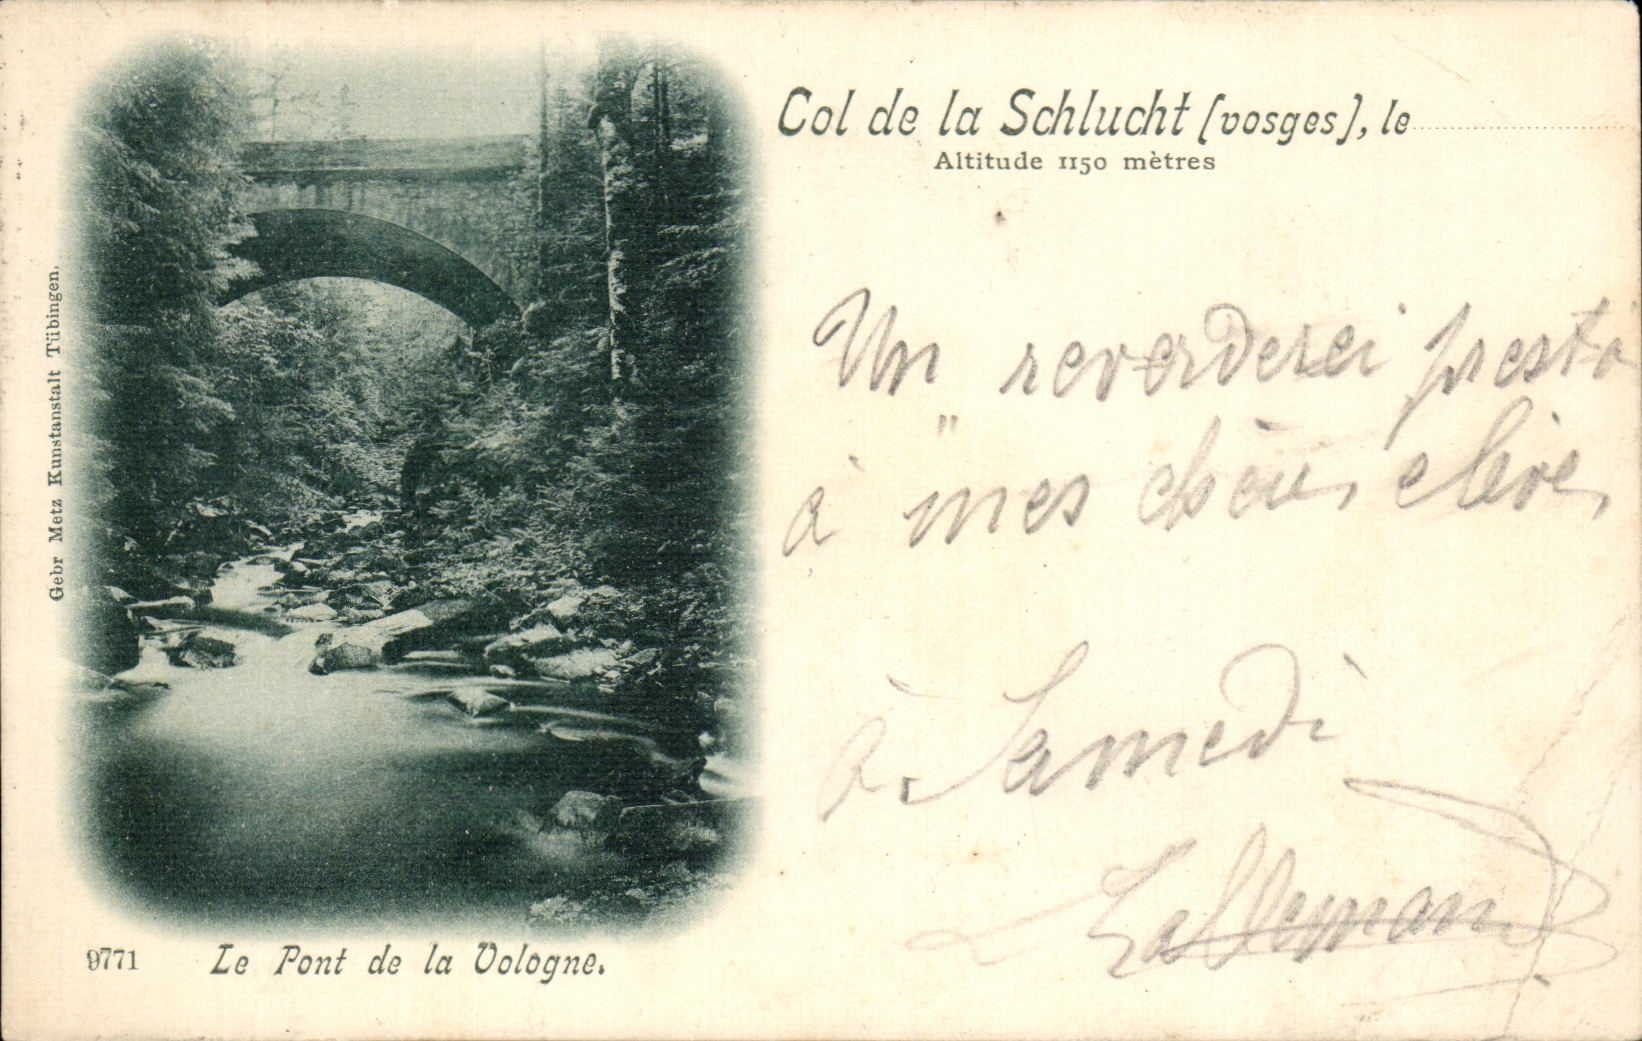 Col de la Schlucht (vosges), le
Altitude 1150 mètres
Un reverderei presto
à mes chères élèves
à Samedi
Lallemand
Gebr Metz Kunstanstalt Tübingen.
9771 Le Pont de la Vologne.